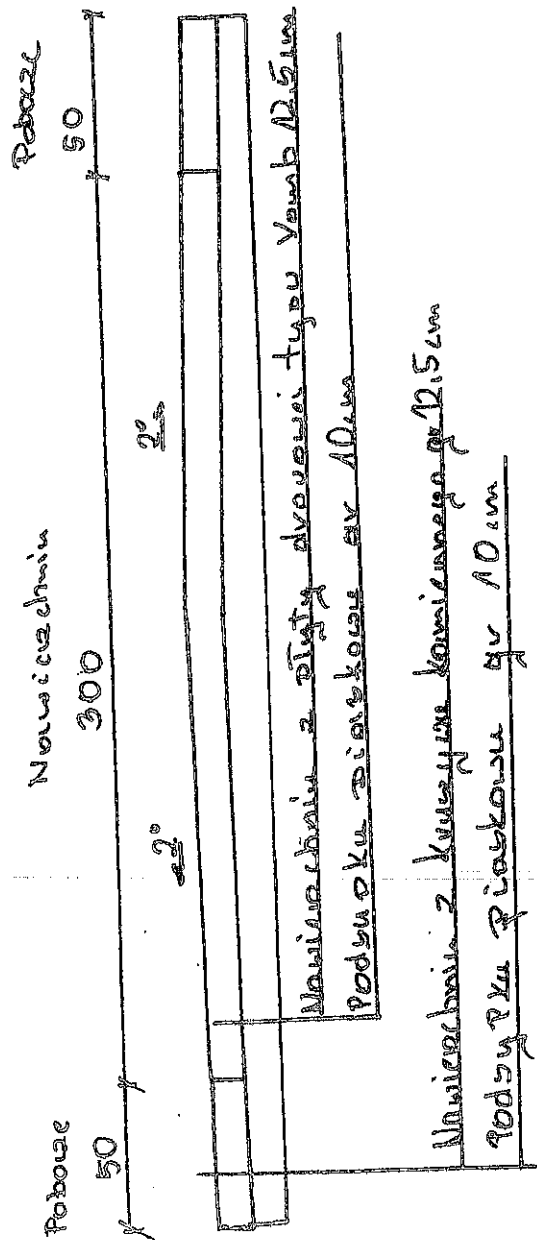 Pobocze
Nawierzchnia
Pobocze
50
300
50
2°
2°
Nawierzchnia z płyty drogowej typu Yomb 12,5 cm
Podsypka piaskowa gr 10 cm
Nawierzchnia z kruszywa kamiennego gr 12,5 cm
Podsypka piaskowa gr 10 cm